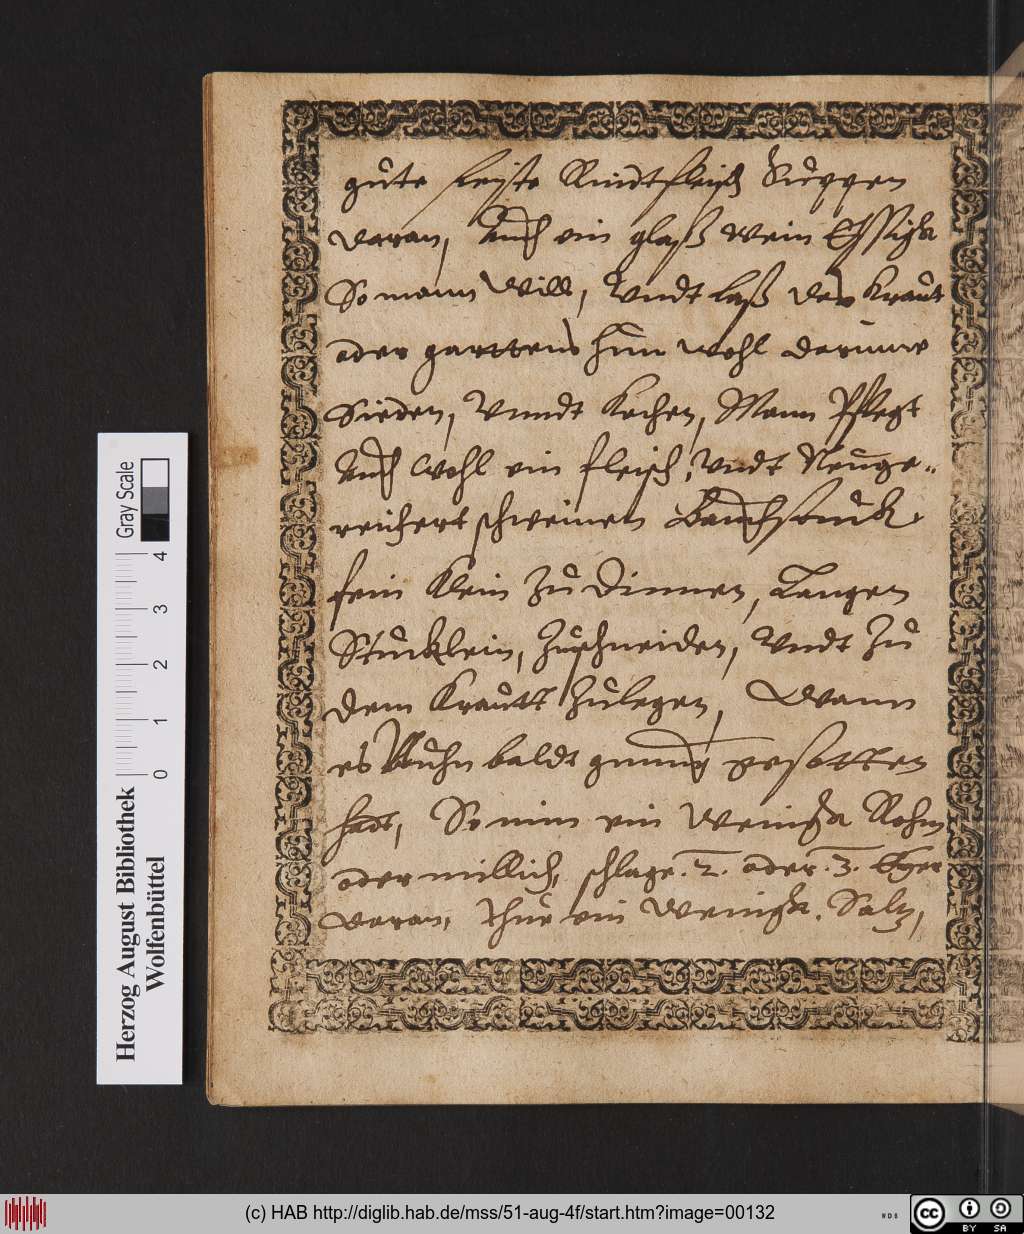 gute feiste Rindtfleisch Suppen
daran, Auch ein glaß Wein Essigs
So mann Will, Undt laß das Kraut
oder garttens hun wohl darinne
Sieden, Unndt Kochen, Mann Pflegt
Auch Wohl ein fleisch, Undt Neuge-
reichert schweinen Bauchstuck
fein Klein Zu Dinnen, Langen
Stucklein, Zuschneiden, Undt Zu
dem Krautt Zulegen, Wann
es Nuhn baldt gnung gesotten
hadt, So nim ein Wenigs Rohm
oder millich, schlage .2. oder .3. Eyer
daran, thue ein Wenigs. Saltz,
Herzog August Bibliothek
Wolfenbüttel
0 1 2 3 4
Gray Scale
(c) HAB http://diglib.hab.de/mss/51-aug-4f/start.htm?image=00132
WDB
cc BY SA